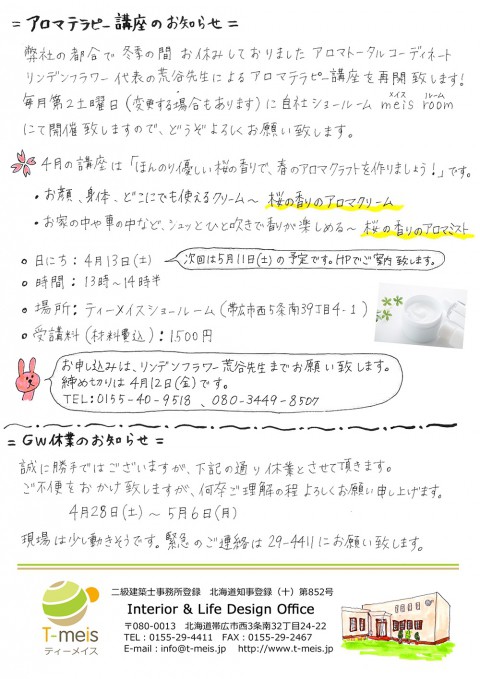 = アロマテラピー講座のお知らせ =
弊社の都合で冬季の間お休みしておりましたアロマトータルコーディネート
リンデンフラワー代表の荒谷先生によるアロマテラピー講座を再開致します!
毎月第2土曜日(変更する場合もあります)に自社ショールーム meis room
メイス ルーム
にて開催致しますので、どうぞよろしくお願い致します。
4月の講座は「ほんのり優しい桜の香りで、春のアロマクラフトを作りましょう!」です。
・お顔、身体、どこにでも使えるクリーム〜 桜の香りのアロマクリーム
・お家の中や車の中など、シュッとひと吹きで香りが楽しめる〜 桜の香りのアロマミスト
○ 日にち:4月13日(土) 次回は5月11日(土)の予定です。HPでご案内致します。
○ 時間:13時〜14時半
○ 場所:ティーメイスショールーム(帯広市西5条南39丁目4-1)
○ 受講料(材料費込):1500円
お申し込みは、リンデンフラワー荒谷先生までお願い致します。
締め切りは4月12日(金)です。
TEL:0155-40-9518、080-3449-8507
= GW休業のお知らせ =
誠に勝手ではございますが、下記の通り休業とさせて頂きます。
ご不便をおかけ致しますが、何卒ご理解の程よろしくお願い申し上げます。
4月28日(土)〜5月6日(月)
現場は少し動きそうです。緊急のご連絡は29-4411にお願い致します。
T-meis
ティーメイス
二級建築士事務所登録 北海道知事登録(十)第852号
Interior & Life Design Office
〒080-0013 北海道帯広市西3条南32丁目24-22
TEL:0155-29-4411 FAX:0155-29-2467
E-mail:info@t-meis.jp http://www.t-meis.jp